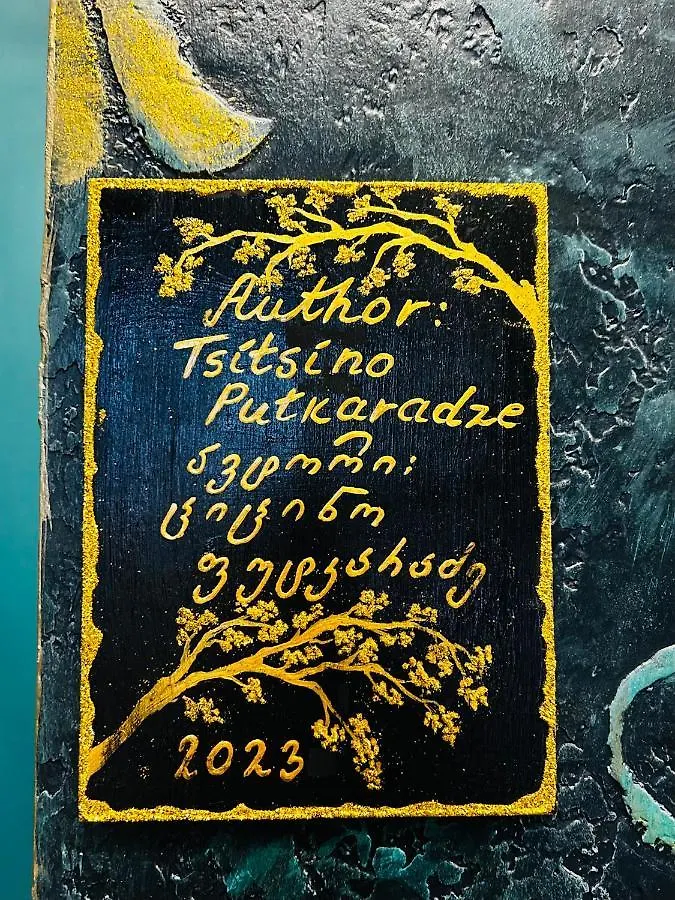 Author:
Tsitsino
Putkaradze
ავტორი:
ციცინო
ფუტკარაძე
2023